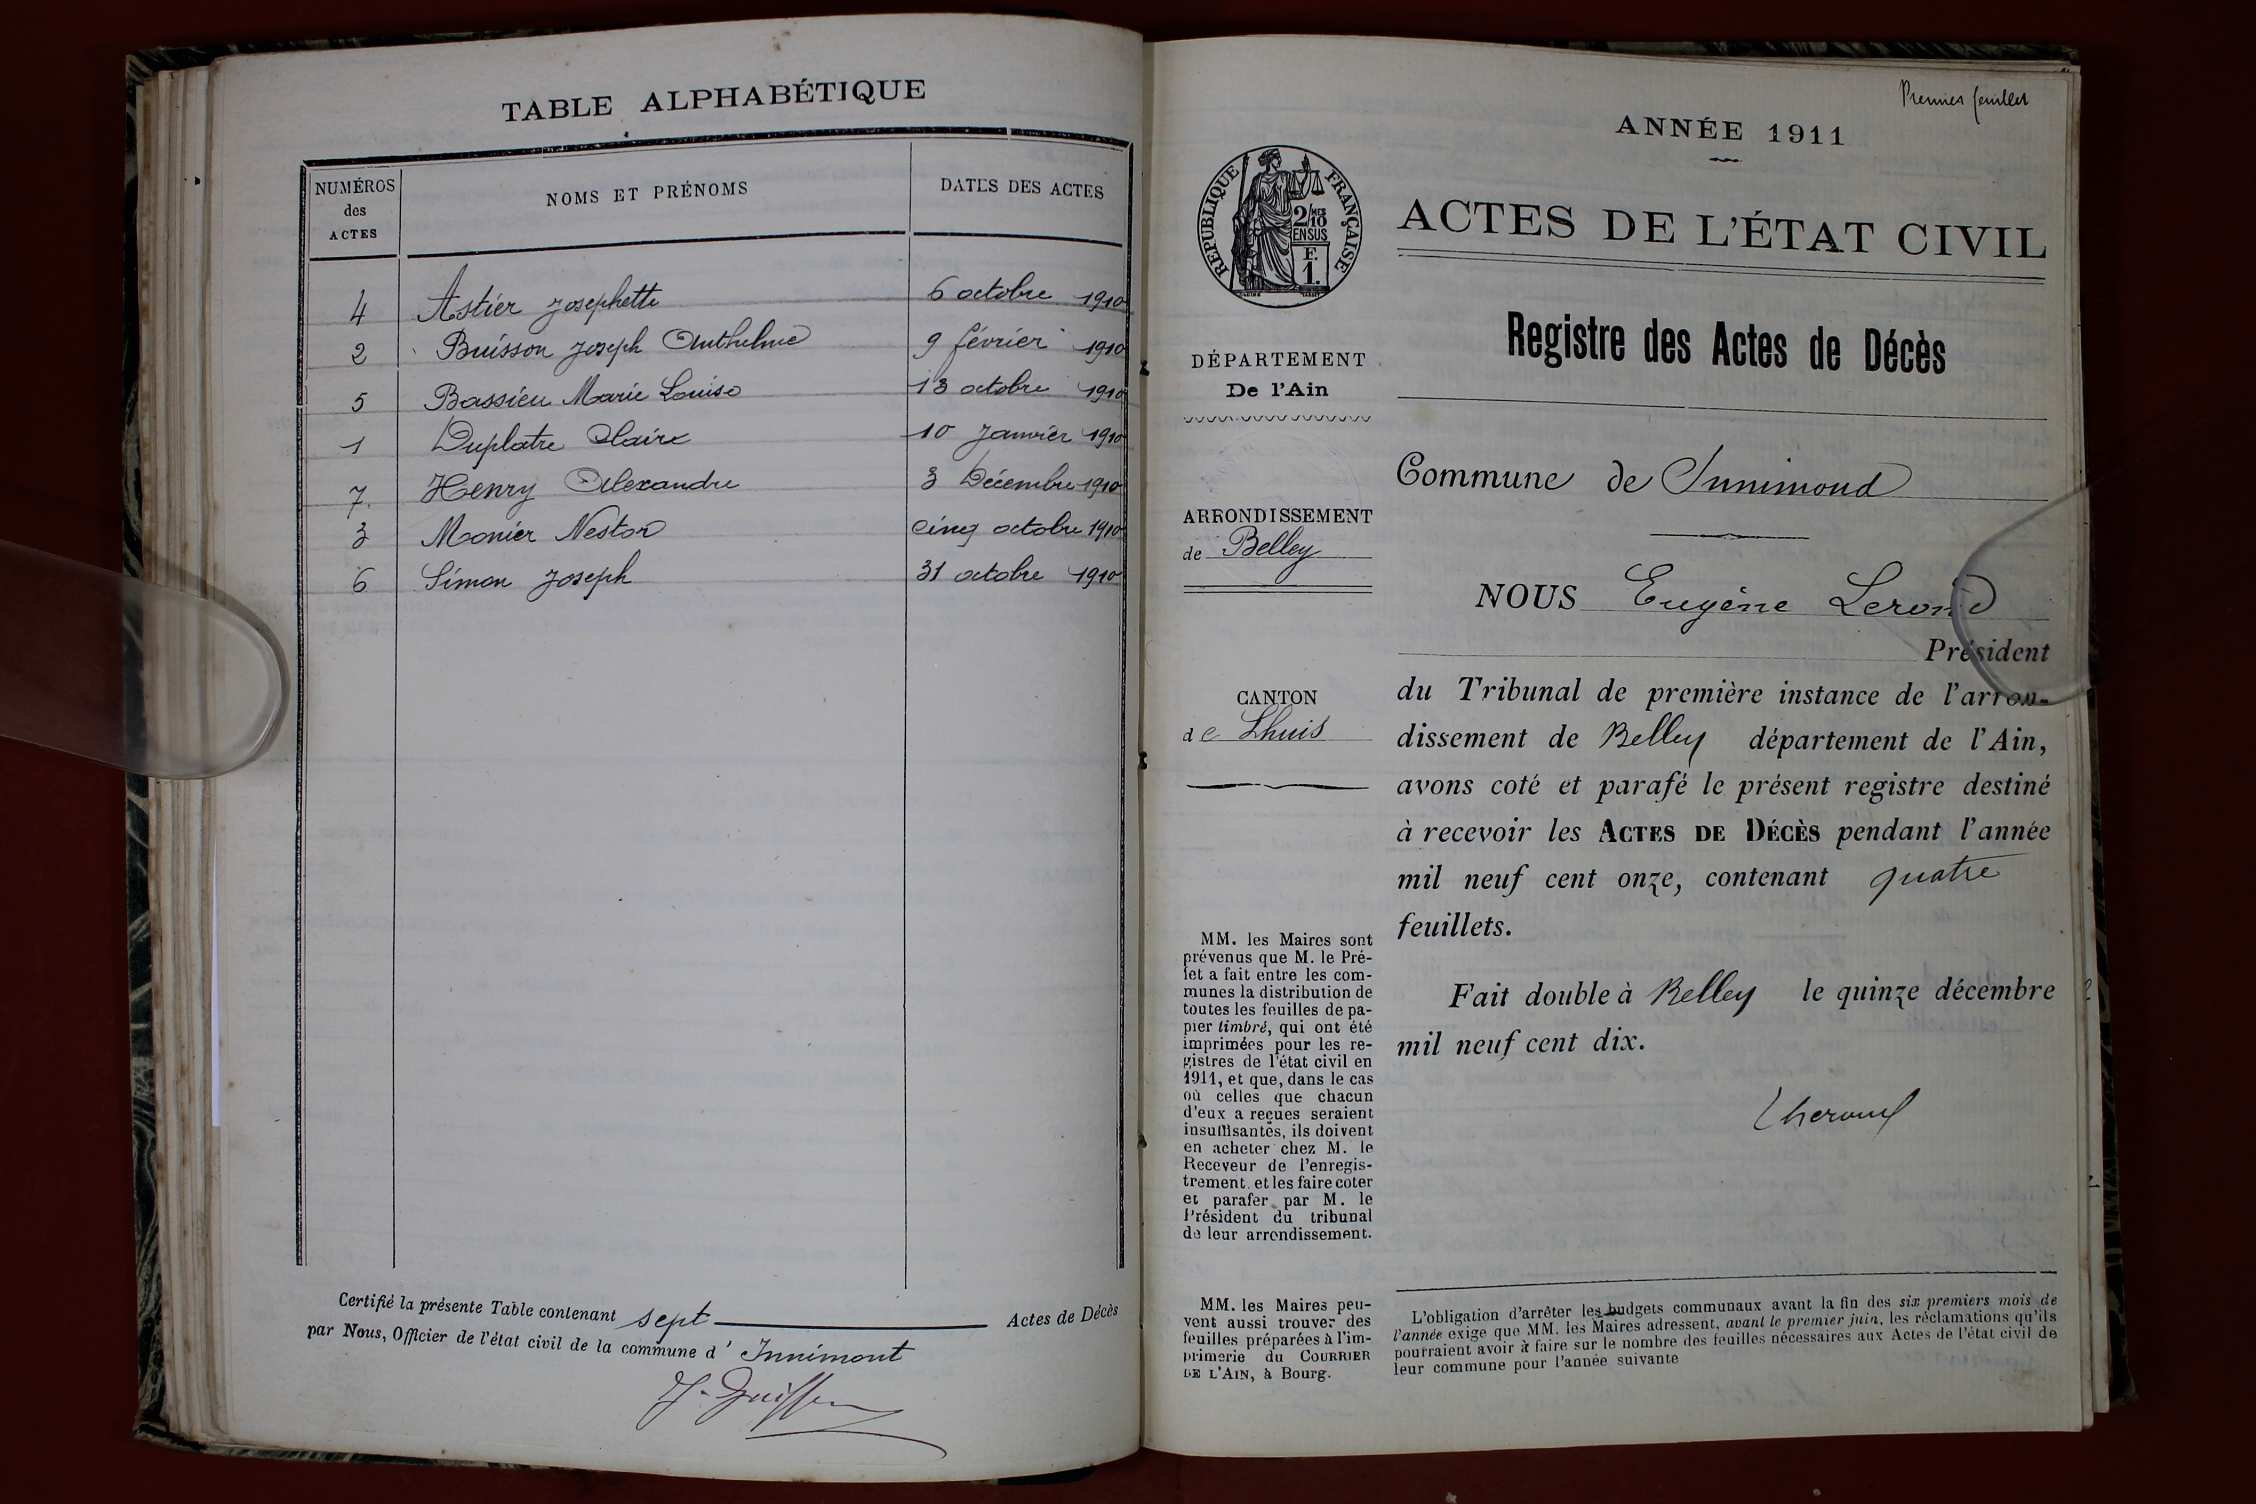 TABLE ALPHABÉTIQUE
NUMÉROS des ACTES
NOMS ET PRÉNOMS
DATES DES ACTES
4 Astier Josephette 6 octobre 1910
2 Buisson Joseph Anthelme 9 février 1910
5 Bassieu Marie Louise 13 octobre 1910
1 Duplatre Claire 10 Janvier 1910
7. Henry Alexandre 3 Décembre 1910
3 Monier Nestor cinq octobre 1910
6 Simon Joseph 31 octobre 1910
Certifié la présente Table contenant sept Actes de Décès
par Nous, Officier de l'état civil de la commune d' Innimont
Premier feuillet
ANNÉE 1911
RÉPUBLIQUE FRANÇAISE
2/10 MES
EN SUS
F.
1.
ACTES DE L'ÉTAT CIVIL
Registre des Actes de Décès
DÉPARTEMENT
De l'Ain
ARRONDISSEMENT
de Belley
CANTON
de Lhuis
MM. les Maires sont
prévenus que M. le Pré-
fet a fait entre les com-
munes la distribution de
toutes les feuilles de pa-
pier timbré, qui ont été
imprimées pour les re-
gistres de l'état civil en
1911, et que, dans le cas
où celles que chacun
d'eux a reçues seraient
insuffisantes, ils doivent
en acheter chez M. le
Receveur de l'enregis-
trement. et les faire coter
et parafer par M. le
Président du tribunal
de leur arrondissement.
MM. les Maires peu-
vent aussi trouver des
feuilles préparées à l'im-
primerie du COURRIER
DE L'AIN, à Bourg.
Commune de Innimond
NOUS Eugène Lerond
Président
du Tribunal de première instance de l'arron-
dissement de Belley département de l'Ain,
avons coté et parafé le présent registre destiné
à recevoir les ACTES DE DÉCÈS pendant l'année
mil neuf cent onze, contenant quatre
feuillets.
Fait double à Belley le quinze décembre
mil neuf cent dix.
L'obligation d'arrêter les budgets communaux avant la fin des six premiers mois de
l'année exige que MM. les Maires adressent, avant le premier juin, les réclamations qu'ils
pourraient avoir à faire sur le nombre des feuilles nécessaires aux Actes de l'état civil de
leur commune pour l'année suivante